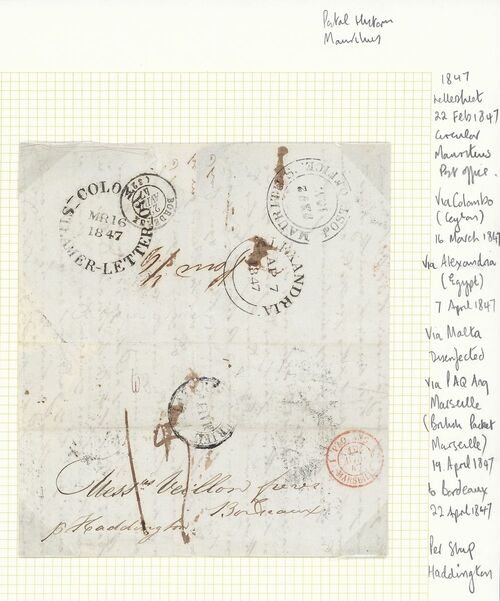 Postal History
Mauritius
1847
Lettersheet
22 Feb 1847
Circular
Mauritius
Post office.
Via Colombo
(Ceylon)
16 March 1847
Via Alexandria
(Egypt)
7 April 1847
Via Malta
Disinfected
via PAQ Ang
Marseille
(British Packet
Marseille)
19 April 1847
to Bordeaux
22 April 1847
Per Ship
Haddington
COLO
MR 16
1847
STEAMER-LETTER
BORDEAUX
POST OFFICE
MAURITIUS
ALEXANDRIA
AP 7
1847
MARSEILLE
Messrs Veillon frères
Bordeaux
p Haddington